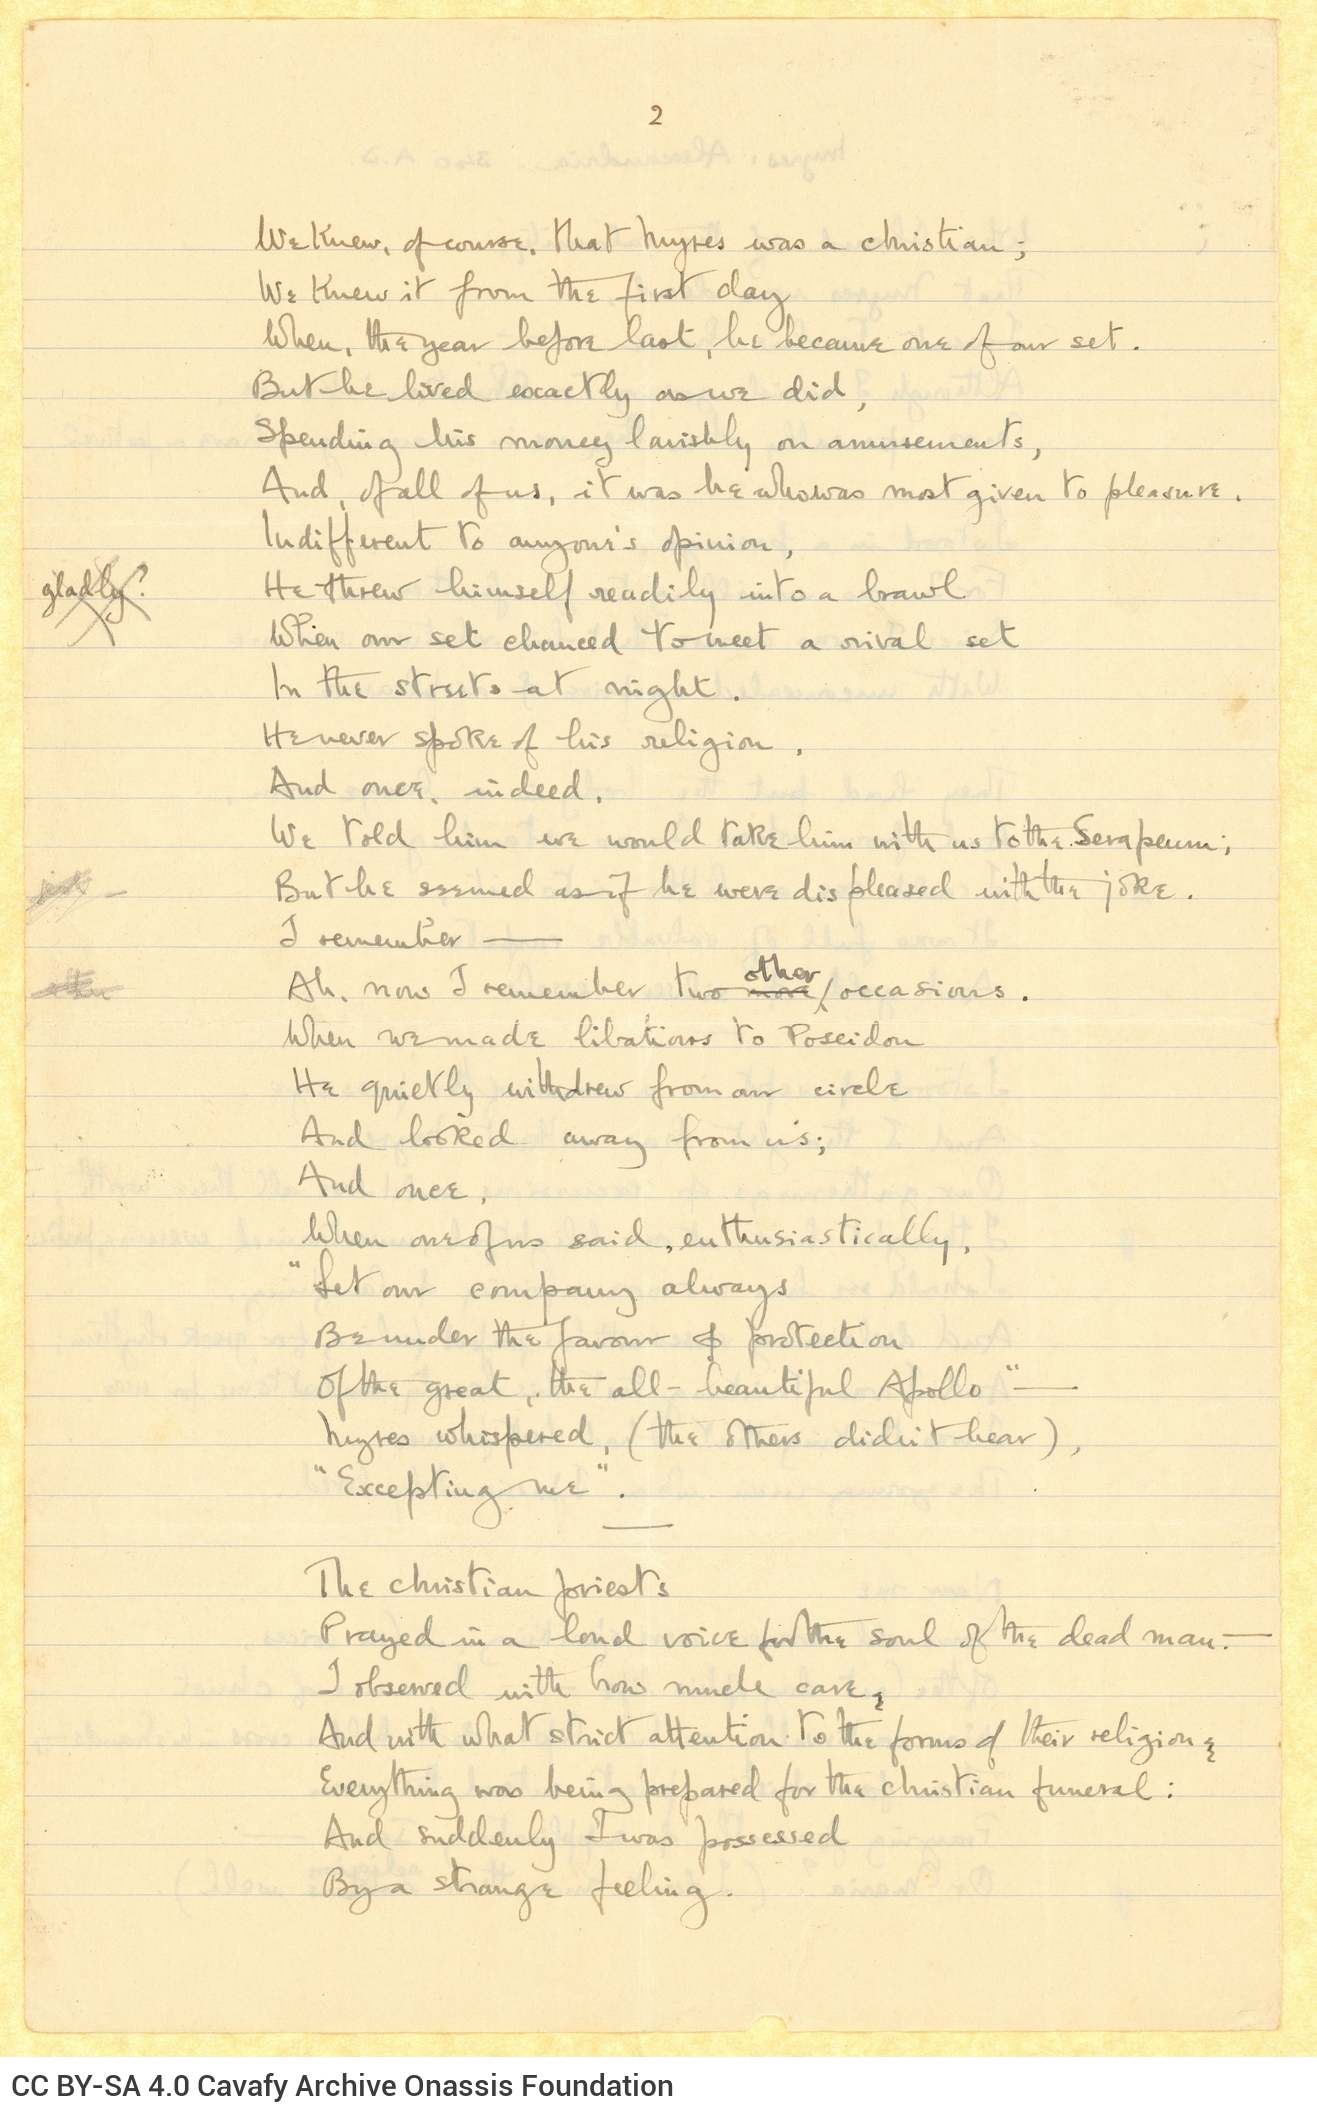 2
We knew, of course, that Myres was a christian;
We knew it from the first day
When, the year before last, he became one of our set.
But he lived exactly as we did,
Spending his money lavishly on amusements,
And, of all of us, it was he who was most given to pleasure.
Indifferent to anyone's opinion,
gladly? He threw himself readily into a brawl
When our set chanced to meet a rival set
In the streets at night.
He never spoke of his religion,
And once, indeed,
We told him we would take him with us to the Serapeum;
But he seemed as if he were displeased with the joke.
I remember —
other
Ah, now I remember two more / occasions.
When we made libations to Poseidon
He quietly withdrew from our circle
And looked away from us;
And once,
When one of us said, enthusiastically,
"Let our company always
Be under the favour & protection
Of the great, the all-beautiful Apollo" —
Myres whispered, (the others didn't hear),
"Excepting me".
The christian priests
Prayed in a loud voice for the soul of the dead man. —
I observed with how much care,
And with what strict attention to the forms of their religion,
Everything was being prepared for the christian funeral:
And suddenly I was possessed
By a strange feeling.
CC BY-SA 4.0 Cavafy Archive Onassis Foundation